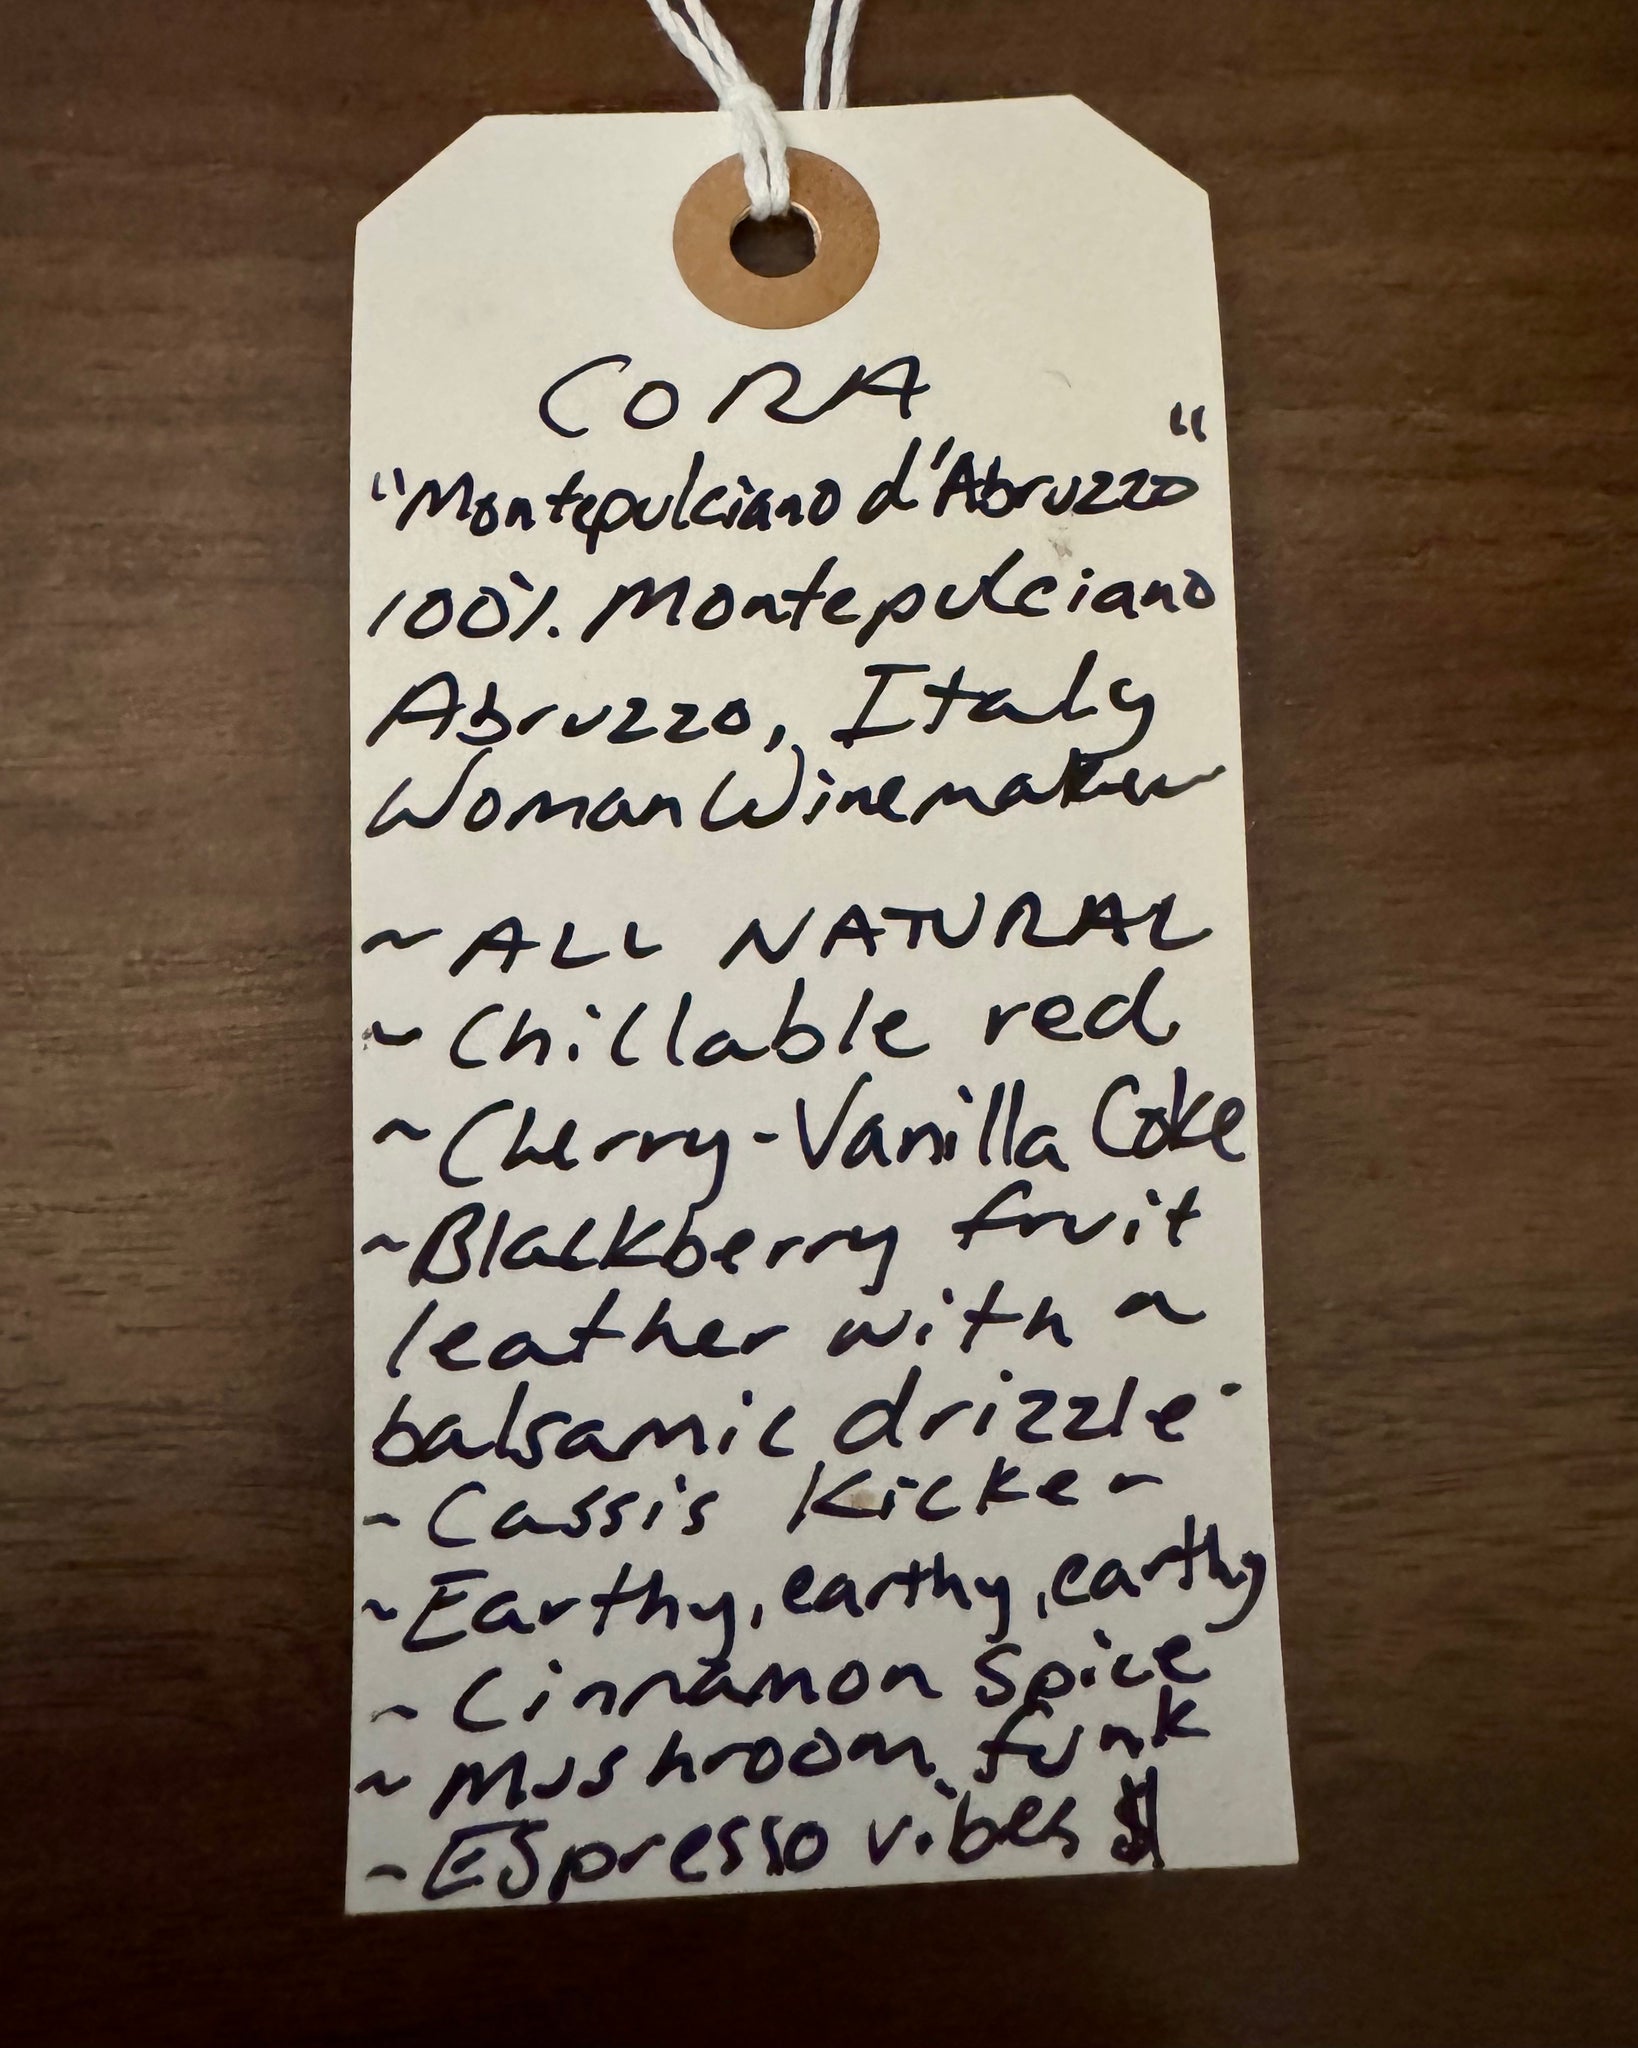 CORA
"Montepulciano d'Abruzzo"
100% Montepulciano
Abruzzo, Italy
Woman Winemaker
~ ALL NATURAL
~ Chillable red
~ Cherry-Vanilla Coke
~ Blackberry fruit
leather with a
balsamic drizzle
~ Cassis Kicker
~ Earthy, earthy, earthy
~ Cinnamon spice
~ Mushroom funk
~ Espresso vibes